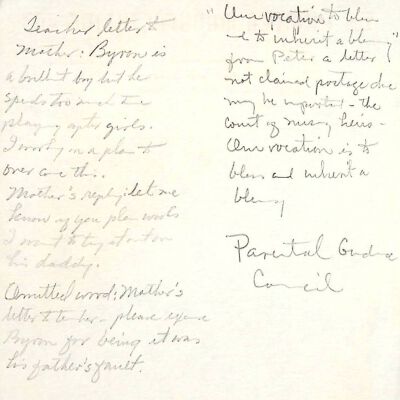 Teacher letter to
Mother: Byron is
a brillant boy but he
spends too much time
playing after girls.
I working on a plan to
over come this.
Mother's reply: let me
know if your plan works
I want to try it out on
his daddy.
Omitted word: Mother's
letter to teacher - please excuse
Byron for being it was
his father's fault.
"Our vocation to bless
and to inherit a blessing"
from Peter a letter
not claimed postage due
may be important - the
court of missing heirs -
Our vocation is to
bless and inherit a
blessing
Parental Guidance
Council